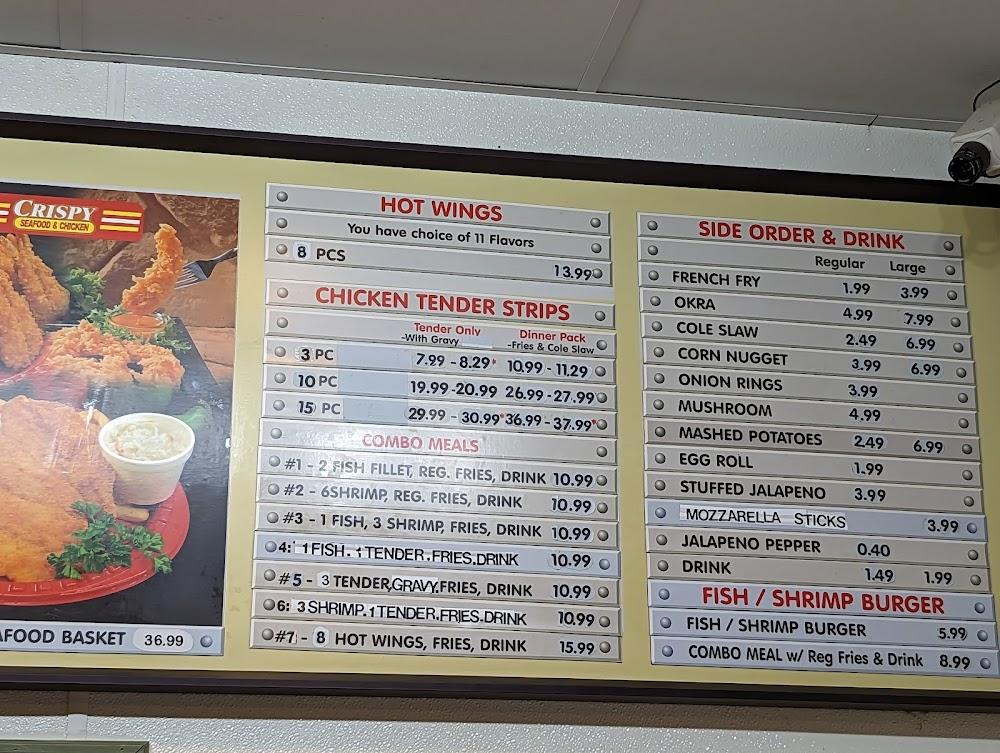 CRISPY
SEAFOOD & CHICKEN
AFOOD BASKET 36.99
HOT WINGS
You have choice of 11 Flavors
8 PCS 13.99
CHICKEN TENDER STRIPS
Tender Only Dinner Pack
-With Gravy -Fries & Cole Slaw
3 PC 7.99 - 8.29* 10.99 - 11.29
10 PC 19.99 - 20.99 26.99 - 27.99
15 PC 29.99 - 30.99* 36.99 - 37.99*
COMBO MEALS
#1 - 2 FISH FILLET, REG. FRIES, DRINK 10.99
#2 - 6SHRIMP, REG. FRIES, DRINK 10.99
#3 - 1 FISH, 3 SHRIMP, FRIES, DRINK 10.99
4: 1 FISH. 1 TENDER.FRIES.DRINK 10.99
#5 - 3 TENDER,GRAVY,FRIES, DRINK 10.99
6: 3 SHRIMP.1 TENDER.FRIES.DRINK 10.99
#7 - 8 HOT WINGS, FRIES, DRINK 15.99
SIDE ORDER & DRINK
Regular Large
FRENCH FRY 1.99 3.99
OKRA 4.99 7.99
COLE SLAW 2.49 6.99
CORN NUGGET 3.99 6.99
ONION RINGS 3.99
MUSHROOM 4.99
MASHED POTATOES 2.49 6.99
EGG ROLL 1.99
STUFFED JALAPENO 3.99
MOZZARELLA STICKS 3.99
JALAPENO PEPPER 0.40
DRINK 1.49 1.99
FISH / SHRIMP BURGER
FISH / SHRIMP BURGER 5.99
COMBO MEAL w/ Reg Fries & Drink 8.99